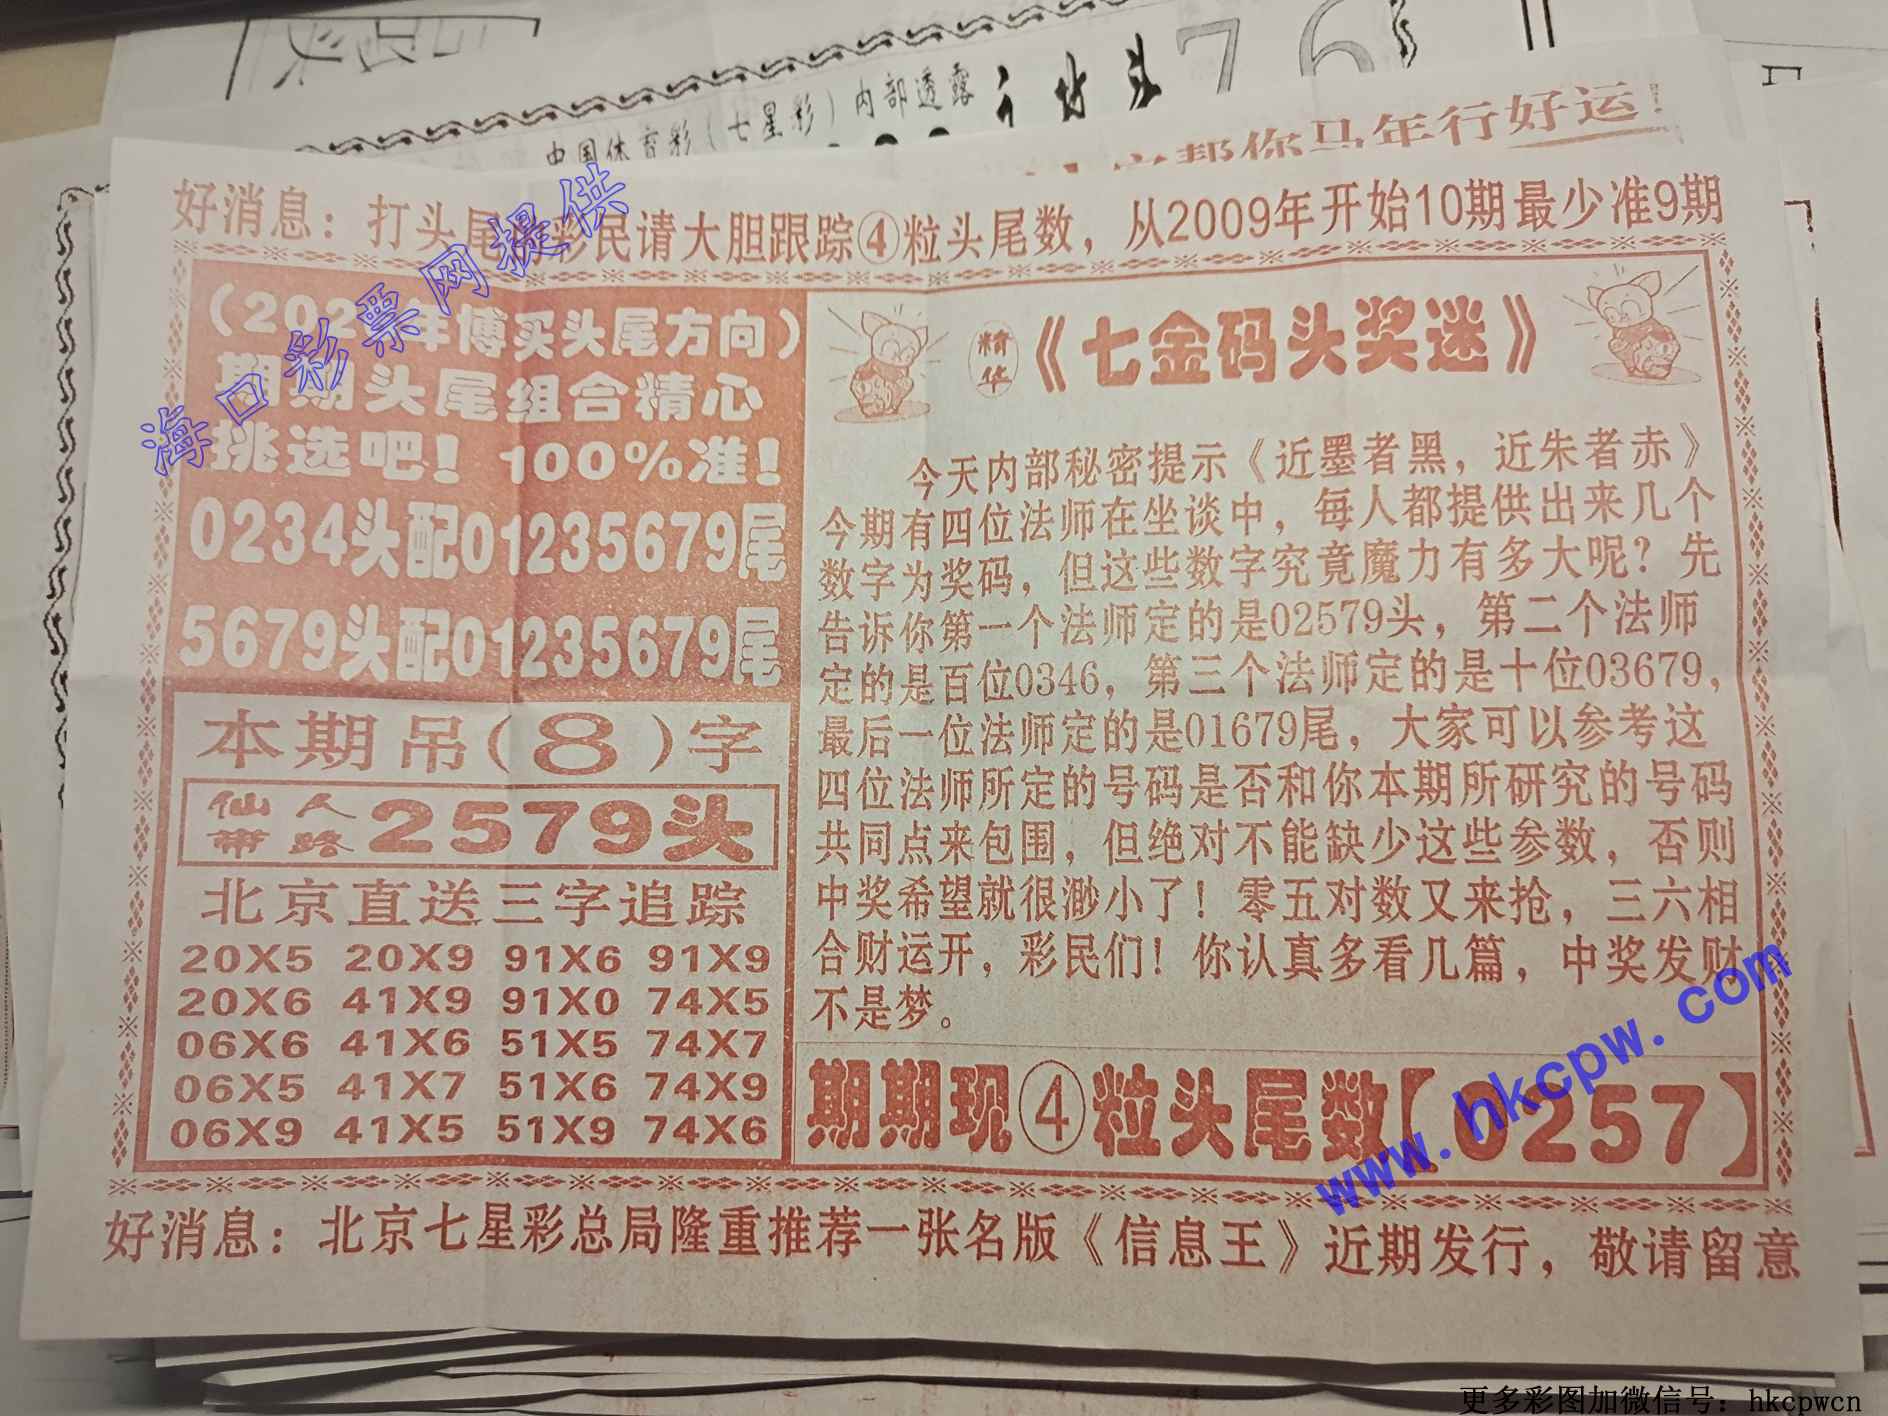 中国体育彩(七星彩)内部透露
76
帮你马年行好运!
好消息：打头尾彩民请大胆跟踪④粒头尾数，从2009年开始10期最少准9期
(202年博买头尾方向)
期期头尾组合精心
挑选吧！100%准！
0234头配01235679尾
5679头配01235679尾
本期吊(8)字
仙人带路2579头
北京直送三字追踪
20X5 20X9 91X6 91X9
20X6 41X9 91X0 74X5
06X6 41X6 51X5 74X7
06X5 41X7 51X6 74X9
06X9 41X5 51X9 74X6
精华《七金码头奖迷》
今天内部秘密提示《近墨者黑，近朱者赤》
今期有四位法师在坐谈中，每人都提供出来几个
数字为奖码，但这些数字究竟魔力有多大呢？先
告诉你第一个法师定的是02579头，第二个法师
定的是百位0346，第三个法师定的是十位03679，
最后一位法师定的是01679尾，大家可以参考这
四位法师所定的号码是否和你本期所研究的号码
共同点来包围，但绝对不能缺少这些参数，否则
中奖希望就很渺小了！零五对数又来抢，三六相
合财运开，彩民们！你认真多看几篇，中奖发财
不是梦。
期期现④粒头尾数【0257】
好消息：北京七星彩总局隆重推荐一张名版《信息王》近期发行，敬请留意
海口彩票网提供
www.hkcpw.com
更多彩图加微信号：hkcpwcn